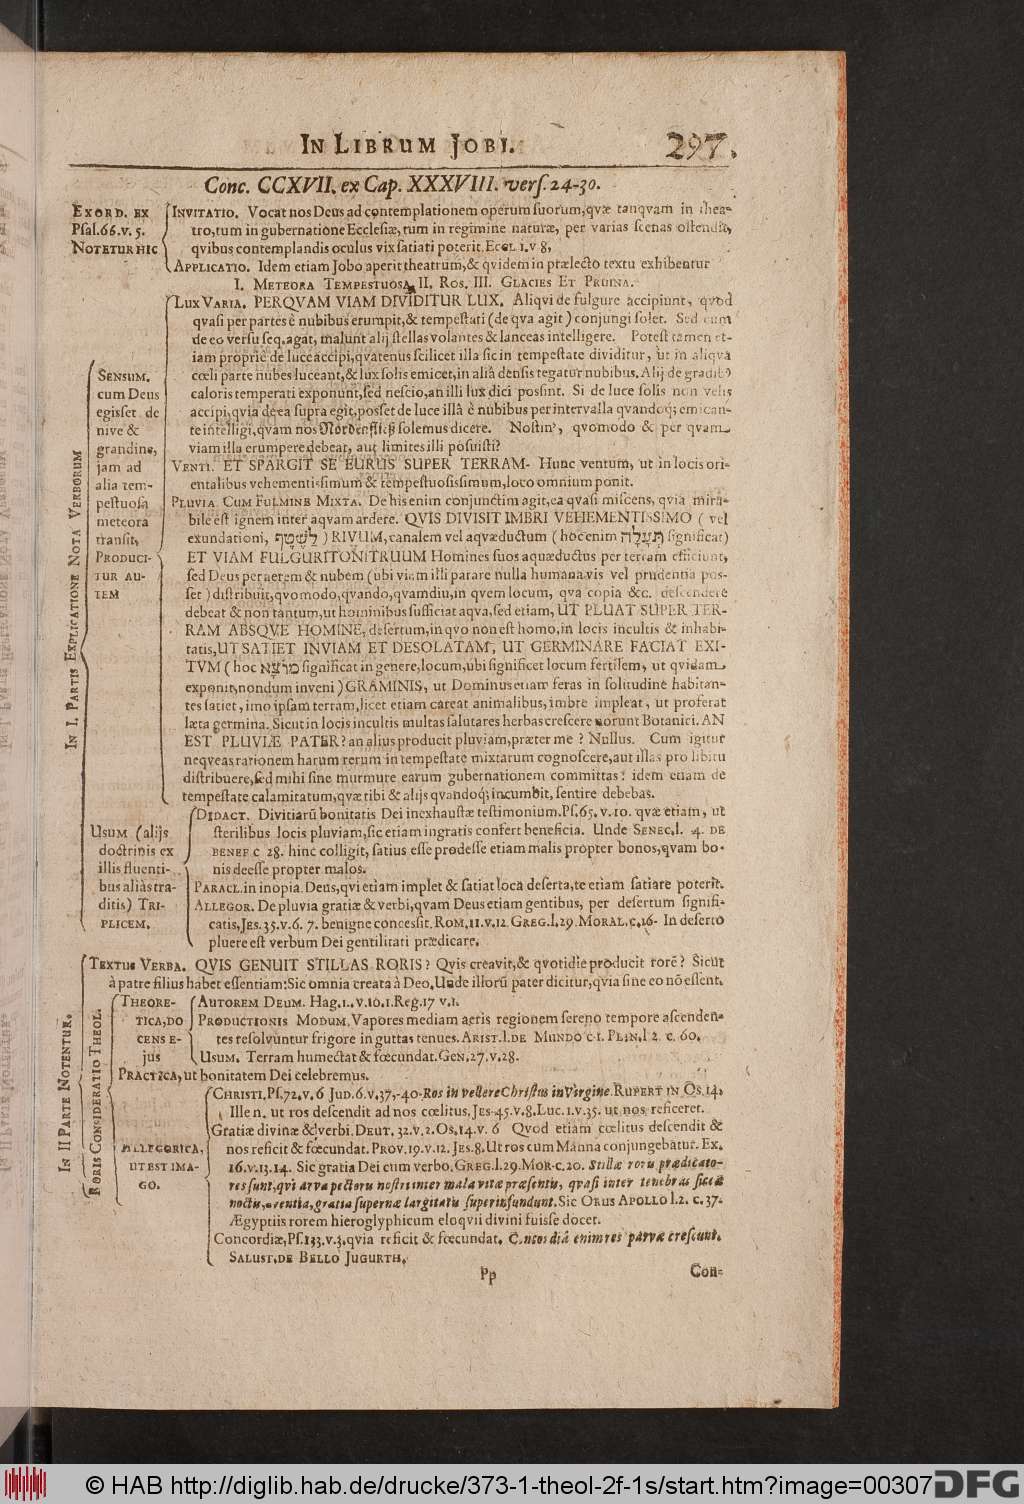 IN LIBRUM JOBI. 297.
Conc. CCXVII. ex Cap. XXXVIII. vers. 24-30.
EXORD. EX
Psal. 66. v. 5.
NOTETUR HIC
INVITATIO. Vocat nos Deus ad contemplationem operum suorum, qvæ tanqvam in thea-
tro, tum in gubernatione Ecclesiæ, tum in regimine naturæ, per varias scenas ostendit,
qvibus contemplandis oculus vix satiati poterit. Eccl. 1. v 8,
APPLICATIO. Idem etiam Jobo aperit theatrum, & qvidem in prælecto textu exhibentur
I. METEORA TEMPESTUOSA, II. ROS. III. GLACIES ET PRUINA.
IN I. PARTIS EXPLICATIONE NOTA VERBORUM
SENSUM.
cum Deus
egisset de
nive &
grandine,
jam ad
alia tem-
pestuosa
meteora
transit,
PRODUCI-
TUR AU-
TEM
LUX VARIA. PERQVAM VIAM DIVIDITUR LUX. Aliqvi de fulgure accipiunt, qvod
qvasi per partes è nubibus erumpit, & tempestati (de qva agit) conjungi solet. Sed cum
de eo versu seq. agat, malunt alij stellas volantes & lanceas intelligere. Potest tamen et-
iam propriè de luce accipi, qvatenus scilicet illa sic in tempestate dividitur, ut in aliqva
cœli parte nubes luceant, & lux solis emicet, in aliâ densis tegatur nubibus. Alij de gradib9
caloris temperati exponunt, sed nescio, an illi lux dici possint. Si de luce solis non velis
accipi, qvia de ea supra egit, posset de luce illâ è nubibus per intervalla qvandoq; emican-
te intelligi, qvam nos Nordenflicß solemus dicere. Nostin', qvomodo & per qvam
viam illa erumpere debeat, aut limites illi posuisti?
VENTI. ET SPARGIT SE EURUS SUPER TERRAM. Hunc ventum, ut in locis ori-
entalibus vehementissimum & tempestuosissimum, loco omnium ponit.
PLUVIA CUM FULMINE MIXTA. De his enim conjunctim agit, ea qvasi miscens, qvia mira-
bile est ignem inter aqvam ardere. QVIS DIVISIT IMBRI VEHEMENTISSIMO ( vel
exundationi, לַשֶּׁטֶף ) RIVUM, canalem vel aqvæductum ( hoc enim תְּעָלָה significat)
ET VIAM FULGURI TONITRUUM Homines suos aquæductus per terram efficiunt,
sed Deus per aerem & nubem ( ubi viam illi parare nulla humana vis vel prudentia pos-
set ) distribuit, qvomodo, qvando, qvamdiu, in qvem locum, qva copia &c. descendere
debeat & non tantum, ut hominibus sufficiat aqva, sed etiam, UT PLUAT SUPER TER-
RAM ABSQVE HOMINE, desertum, in qvo non est homo, in locis incultis & inhabi-
tatis, UT SATIET INVIAM ET DESOLATAM, UT GERMINARE FACIAT EXI-
TVM ( hoc מֹצָא significat in genere, locum, ubi significet locum fertilem, ut qvidam
exponit, nondum inveni ) GRAMINIS, ut Dominus etiam feras in solitudine habitan-
tes satiet, imo ipsam terram, licet etiam careat animalibus, imbre impleat, ut proferat
læta germina. Sicut in locis incultis multas salutares herbas crescere norunt Botanici. AN
EST PLUVIÆ PATER? an alius producit pluviam, præter me? Nullus. Cum igitur
neqveas rationem harum rerum in tempestate mixtarum cognoscere, aut illas pro libitu
distribuere, sed mihi sine murmure earum gubernationem committas: idem etiam de
tempestate calamitatum, qvæ tibi & alijs qvandoq; incumbit, sentire debebas.
USUM (alijs
doctrinis ex
illis fluenti-
bus aliàs tra-
ditis) TRI-
PLICEM.
DIDACT. Divitiarũ bonitatis Dei inexhaustæ testimonium. Ps. 65. v. 10. qvæ etiam, ut
sterilibus locis pluviam, sic etiam ingratis confert beneficia. Unde SENEC. l. 4. DE
BENEF c 28. hinc colligit, satius esse prodesse etiam malis propter bonos, qvam bo-
nis deesse propter malos.
PARACL. in inopia. Deus, qvi etiam implet & satiat loca deserta, te etiam satiare poterit.
ALLEGOR. De pluvia gratiæ & verbi, qvam Deus etiam gentibus, per desertum signifi-
catis, JES. 35. v. 6. 7. benigne concessit. ROM, 11. v. 12 GREG. l. 29. MORAL. c. 16. In deserto
pluere est verbum Dei gentilitati prædicare.
IN II PARTE NOTENTUR.
TEXTUS VERBA. QVIS GENUIT STILLAS RORIS? Qvis creavit, & qvotidie producit rorẽ? Sicut
à patre filius habet essentiam: Sic omnia creata à Deo. Unde illorũ pater dicitur, qvia sine eo nõ essent.
RORIS CONSIDERATIO THEOL.
THEORE-
TICA, DO
CENS E-
jus
AUTOREM DEUM. Hag. 1., v. 10. 1. Reg. 17 v. 1.
PRODUCTIONIS MODUM. Vapores mediam aeris regionem sereno tempore ascenden-
tes resolvuntur frigore in guttas tenues. ARIST. l. DE MUNDO c. 1. PLIN. l 2. c. 60.
USUM. Terram humectat & fœcundat. GEN. 27. v. 28.
PRACTICA, ut bonitatem Dei celebremus.
ALLEGORICA,
UT EST IMA-
GO.
CHRISTI, Ps. 72, v. 6 JUD. 6. v. 37,-40. Ros in vellere Christus in Virgine. RUPERT IN OS. 14,
Ille n. ut ros descendit ad nos cœlitus, JES. 45. v. 8. LUC. 1. v. 35. ut nos reficeret.
Gratiæ divinæ & verbi. DEUT. 32. v. 2. OS, 14. v. 6 Qvod etiam cœlitus descendit &
nos reficit & fœcundat. PROV. 19. v. 12. JES. 8. Ut ros cum Manna conjungebatur. Ex.
16. v. 13. 14. Sic gratia Dei cum verbo. GREG. l. 29. MOR. c. 20. Stillæ roris prædicato-
res sunt, qvi arva pectoris nostri inter mala vitæ præsentis, qvasi inter tenebras siccæ
noctis, arentia, gratia supernæ largitatis superinfundunt. Sic ORUS APOLLO l. 2. c. 37.
Ægyptiis rorem hieroglyphicum eloqvii divini fuisse docet.
Concordiæ, Ps. 133. v. 3. qvia reficit & fœcundat. Concordiâ enim res parvæ crescunt.
SALUST. DE BELLO JUGURTH.
Pp Con-
© HAB http://diglib.hab.de/drucke/373-1-theol-2f-1s/start.htm?image=00307
DFG